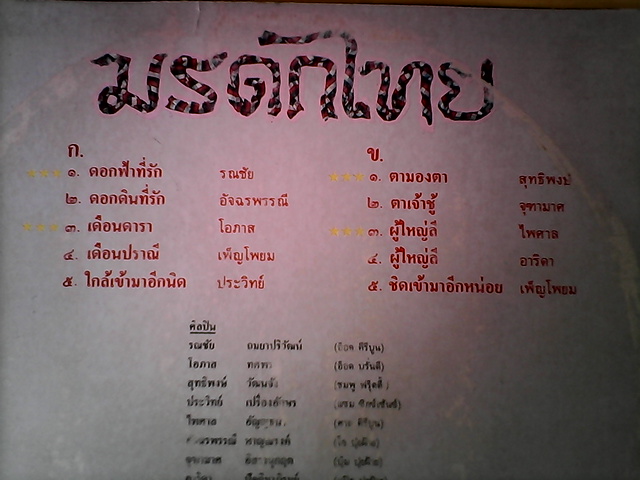 มรดกไทย
ก.
*** ๑. ดอกฟ้าที่รัก รณชัย
๒. ดอกดินที่รัก อัจฉรพรรณี
*** ๓. เดือนดารา โอภาส
๔. เดือนปราณี เพ็ญโพยม
๕. ใกล้เข้ามาอีกนิด ประวิทย์
ข.
*** ๑. ตามองตา สุทธิพงษ์
๒. ตาเจ้าชู้ จุฑามาศ
*** ๓. ผู้ใหญ่ลี ไพศาล
๔. ผู้ใหญ่ลี อาริดา
๕. ชิดเข้ามาอีกหน่อย เพ็ญโพยม
ศิลปิน
รณชัย ถมยาปริวัฒน์ (อ๊อด คีรีบูน)
โอภาส ทศพร (อ๊อด บรั่นดี)
สุทธิพงษ์ วัฒนจัง (ชมพู ฟรุ๊ตตี้)
ประวิทย์ เปรื่องอักษร
ไพศาล